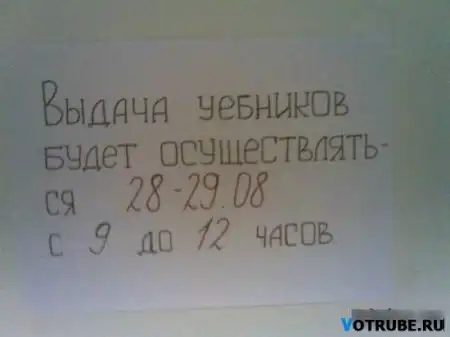 Выдача уебников
будет осуществлять-
ся 28-29.08
с 9 до 12 часов
VOTRUBE.RU